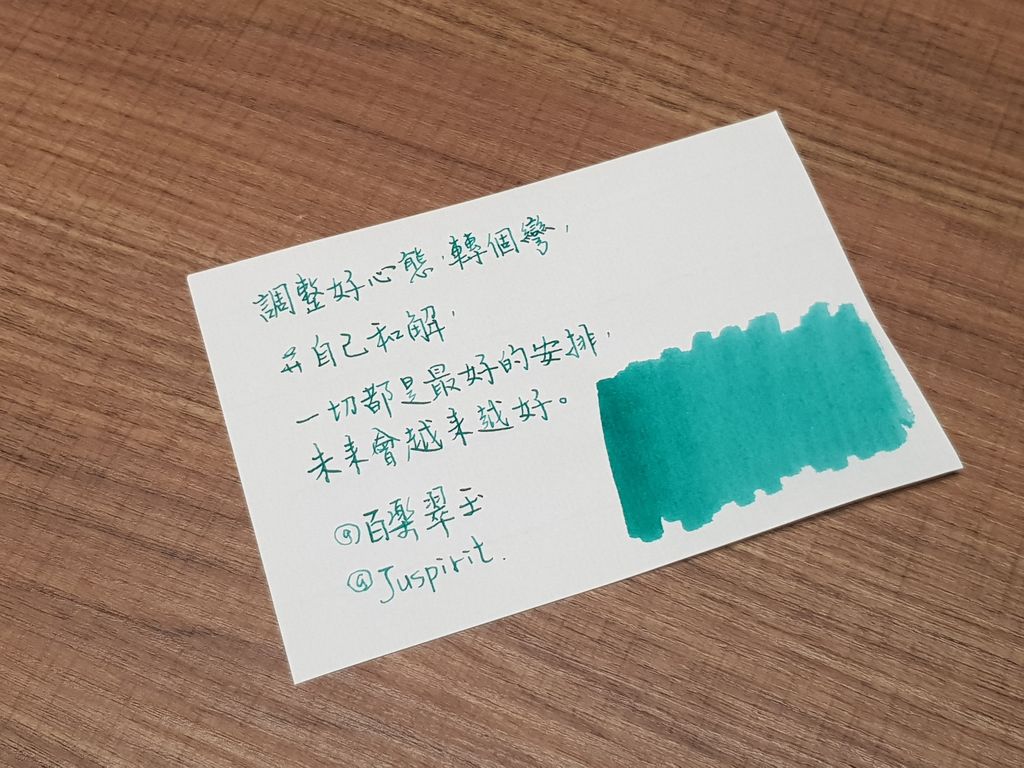 調整好心態,轉個彎,
與自己和解,
一切都是最好的安排,
未來會越來越好。
@百樂翠玉
@Juspirit.